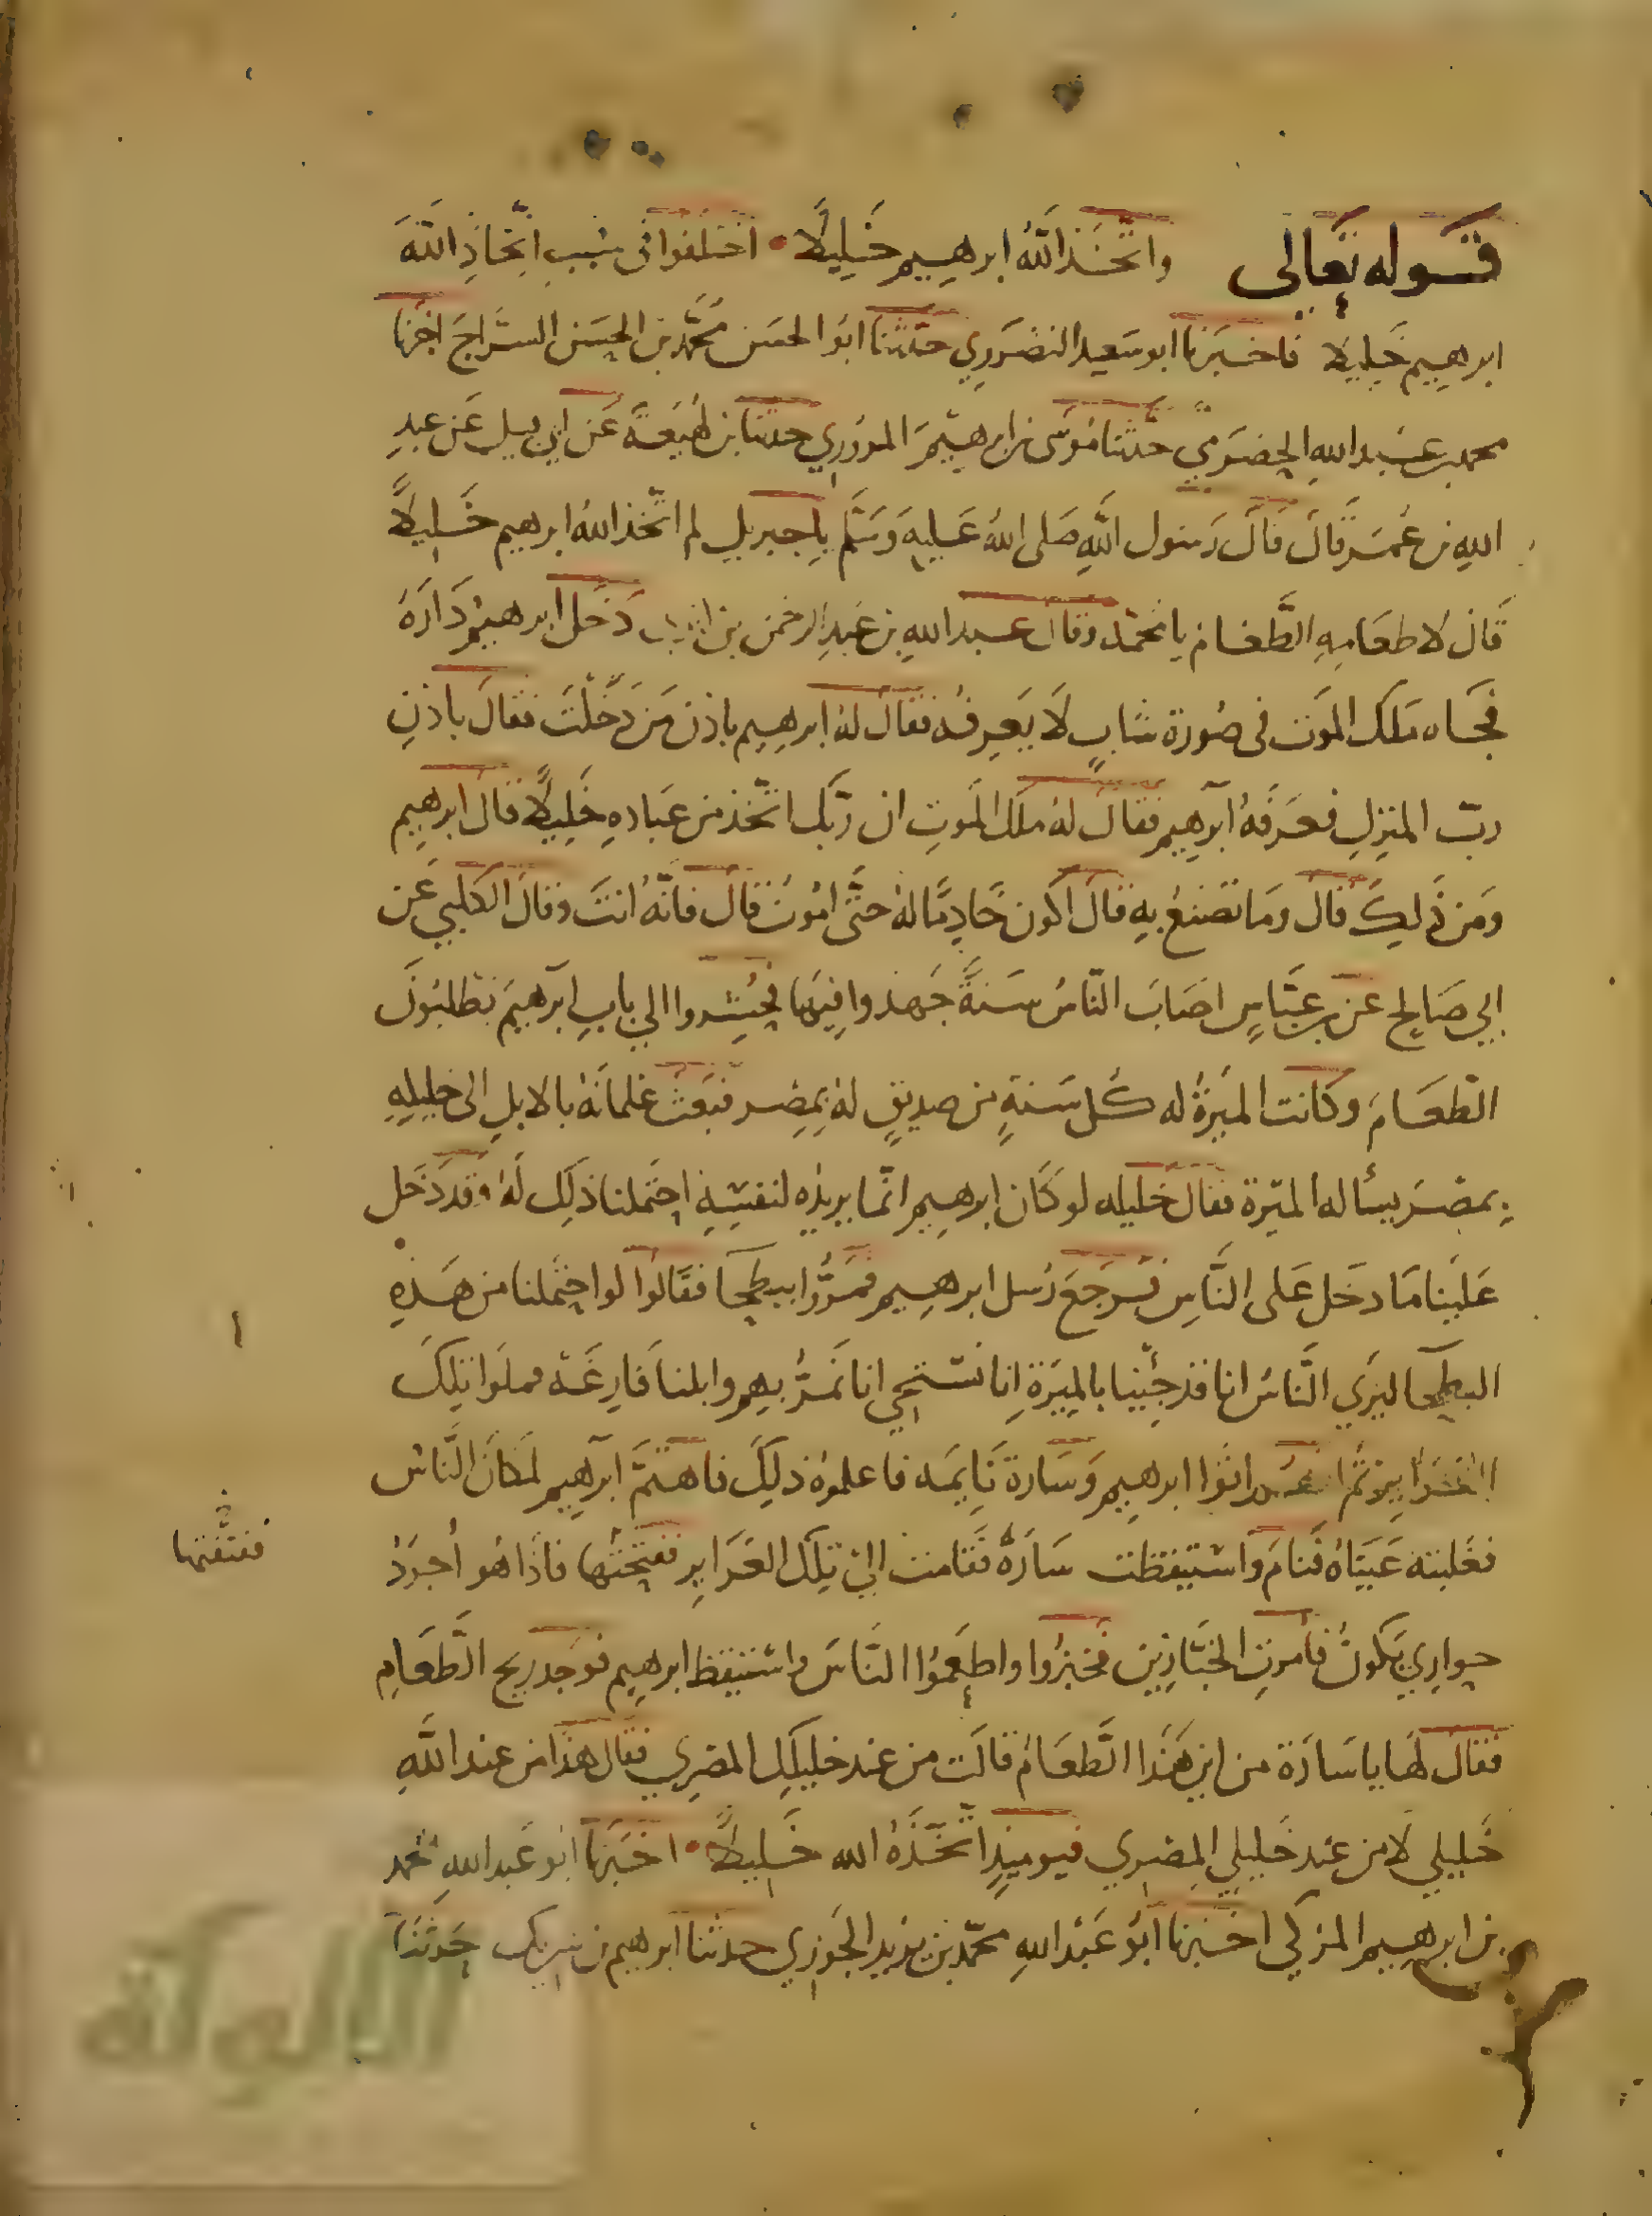 قوله تعالى واتخذ الله ابرهيم خليلا اختلفوا فى سبب اتخاذ الله
ابرهيم خليلا فاخبرنا ابو سعيد النضروي حدثنا ابو الحسن محمد بن الحسن السراج اخبرنا
محمد بن عبد الله الحضرمي حدثنا موسى بن ابرهيم المروزي حدثنا بن لهيعة عن ابي قبيل عن عبد
الله بن عمر قال قال رسول الله صلى الله عليه وسلم يا جبريل لم اتخذ الله ابرهيم خليلا
قال لاطعامه الطعام يا محمد وقال عبد الله بن عبد الرحمن بن ابزى دخل ابرهيم داره
فجاه ملك الموت فى صورة شاب لا يعرفه فقال له ابرهيم باذن من دخلت فقال باذن
رب المنزل فعرفه ابرهيم فقال له ملك الموت ان ربك اتخذ من عباده خليلا قال ابرهيم
ومن ذلك قال وما تصنع به قال اكون خادما له حتى اموت قال فانه انت وقال الكلبي عن
ابي صالح عن بن عباس اصاب الناس سنة جهدوا فيها فحشروا الي باب ابرهيم يطلبون
الطعام وكانت الميرة له كل سنة من صديق له بمصر فبعث غلمانه بالابل الى خليله
بمصر يسأله الميرة فقال خليله لو كان ابرهيم انما يريده لنفسه احتملنا ذلك له وقد دخل
علينا ما دخل على الناس فرجع رسل ابرهيم فمروا ببطحا فقالوا لو احتملنا من هذه
البطحا ليري الناس انا قد جينا بالميرة انا نستحي انا نمر بهم وابلنا فارغة فملوا تلك
الغراير ثم اتوا ابرهيم وسارة نايمه فاعلموه ذلك فاهتم ابرهيم لمكان الناس
فغلبته عيناه فنام واستيقظت سارة فقامت الى تلك الغراير ففتحتها فاذا هو اجود
ففتقتها
حواري يكون فامرت الخبازين فخبزوا واطعموا الناس واستيقظ ابرهيم فوجد ريح الطعام
فقال لها يا سارة من اين هذا الطعام قالت من عند خليلك المصري فقال هذا من عند الله
خليلي لا من عند خليلي المصري فيوميذ اتخذه الله خليلا اخبرنا ابو عبد الله محمد
بن ابرهيم المزكي اخبرنا ابو عبد الله محمد بن يزيد الجوزي حدثنا ابرهيم بن شريك حدثنا
الألوكة